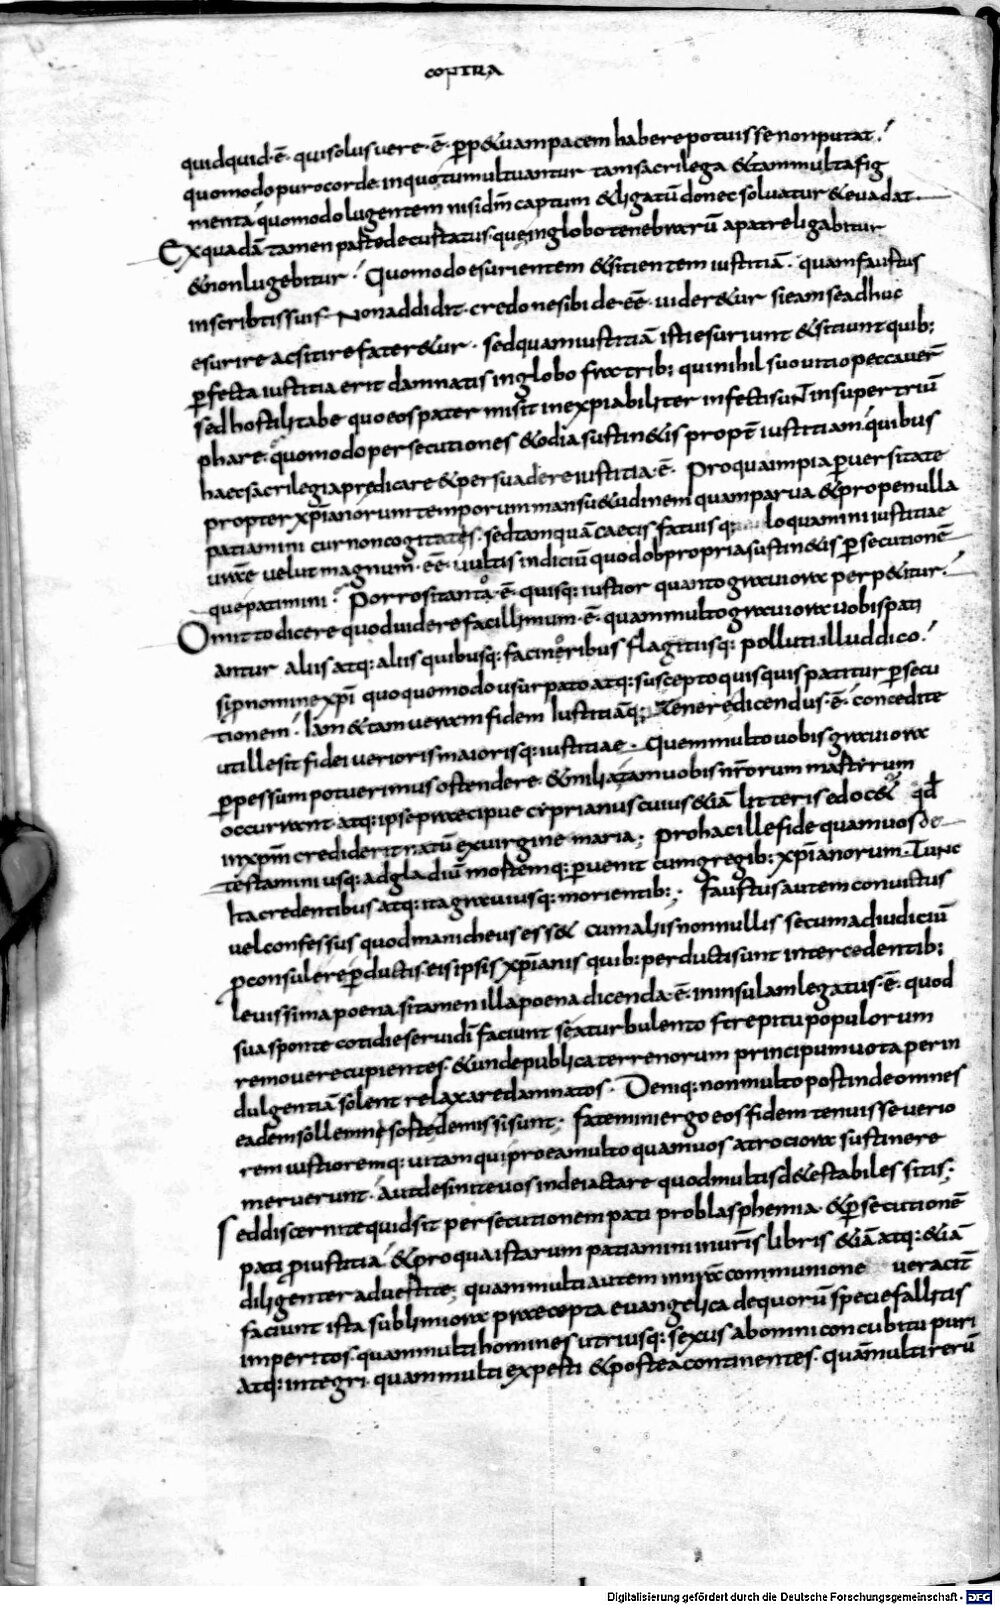 CONTRA
quidquid·ē· qui solus vere·ē· p̱p&uam pacem habere potuisse non putat?
quomodo puro corde in quo tumultuantur tam sacrilega & tam multa fig
menta quomodo lugentem nisi dm̄ captum & ligatū donec solvatur & evadat·
Ex quadā tamen parte decurtatus· que in globo tenebrarū a patre ligabitur
& non lugebitur? Quomodo esurientem & sitientem iustitiā· quam faustus
in scribtis suis Non addidit· credo ne sibi de·ēē· uider&ur si eam se adhuc
esurire ac sitire fater&ur· sed quam iustitiā isti esuriunt & sitiunt quib;
p̱fecta iustitia erit damnatis in globo fratrib; qui nihil suo vitio peccaver̄
sed hostili tabe quo eos pater misit inexpiabiliter infecti suNT insuper triū
phare· quomodo persecutiones & odia sustin&is propt̄ iustitiam· quibus
haec sacrilegia predicare & persuadere iustitia·ē· Pro qua impia p̱versitate
propter xp̄ianorum temporum mansu&udinem quam parva & pro pe nulla
patiamini cur non cogitates· sed tamquā caecis fatuisq; loquamini iustitiae
urāe velut magnum·ēē· vultis indiciū quod ob propria sustin&is p̱secutionē
que patimini? Porro si tanto·ē· quisq; iustior quanto graviora perp&itur?
Omitto dicere quod uidere facillimum·ē· quam multo graviora vobis pati
antur aliis atq; aliis quibusq; facinoribus flagitiisq; polluti illud dico?
si p̱ nomine xp̄i quoquomodo usurpato atq; suscepto quisquis patitur p̱secu
tionem? Iam & tam veram fidem Iustitiāq; tenere dicendus·ē· concedite
ut ille sit fidei verioris maiorisq; iustitiae· Quem multo vobis graviora
p̱pessum potuerimus ostendere· & milia tam vobis nr̄orum martyrum
occurrant· atq; ipse praecipue cyprianus cuius &iā litteris edoc& qd̄
in xpm̄ crediderit natū ex virgine maria; pro hac ille fide quam vos de
testamini usq; ad gladiū mortemq; p̱venit cum gregib; xp̄ianorum· Tunc
Ita credentibus atq; ita gravius q; morientib;· faustus autem convictus
vel confessus quod manicheus ess& cum aliis nonnullis secum ad iudiciū
p̱consulere p̱ductis· eis ipsis xp̄ianis quib; perducti sunt intercedentib;
levissima poena si tamen illa poena dicenda·ē· in insulam legatus·ē· quod
sua sponte cotidie servi dī faciunt se a turbulento strepitu populorum
removere cupientes· & unde publica terrenorum principum vota per in
dulgentiā solent relaxare damnatos· Deniq; non multo post inde omnes
eadem sollemne sorte demissi sunt; fatemini ergo eos fidem tenuisse verio
rem iustioremq; vitam qui pro ea multo quam vos atrociora sustinere
meruerunt· Aut desinite vos inde iactare quod multis d&estabiles sitis;
Sed discernite quid sit persecutionem pati pro blasphemia· & p̱secutionē
pati p̱ iustitia· & pro qua istarum patiamini in ur̄is libris &iā atq; &iā
diligenter advertite; quam multi autem in nr̄a communione veracit̄
faciunt ista sublimiora praecepta evangelica de quorū specie fallitis
imperitos· quam multi homines utriusq; sexus ab omni concubitu puri
atq; integri· quam multi experti & postea continentes· quā multi rerū